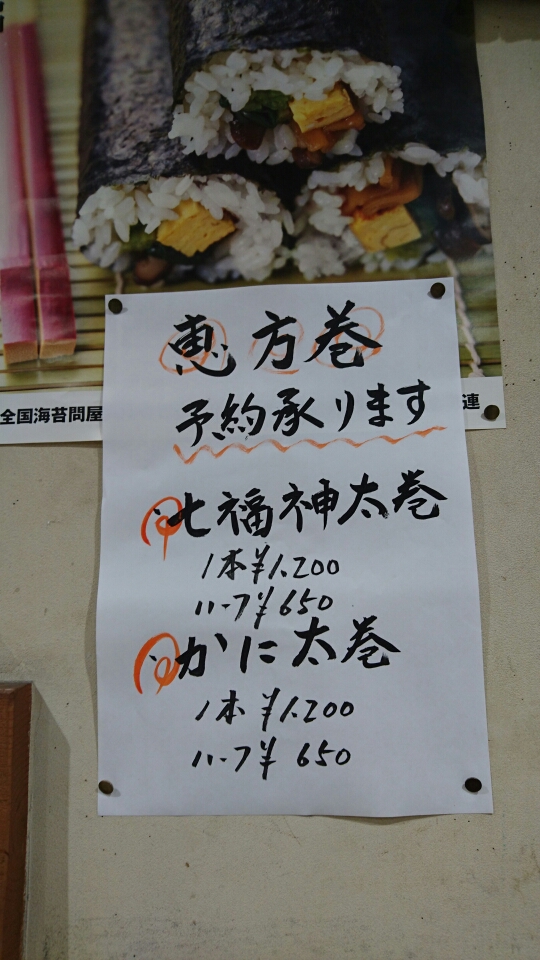 恵方巻
予約承ります
全国海苔問屋
連
七福神太巻
1本¥1.200
ハーフ¥650
かに太巻
1本¥1.200
ハーフ¥650